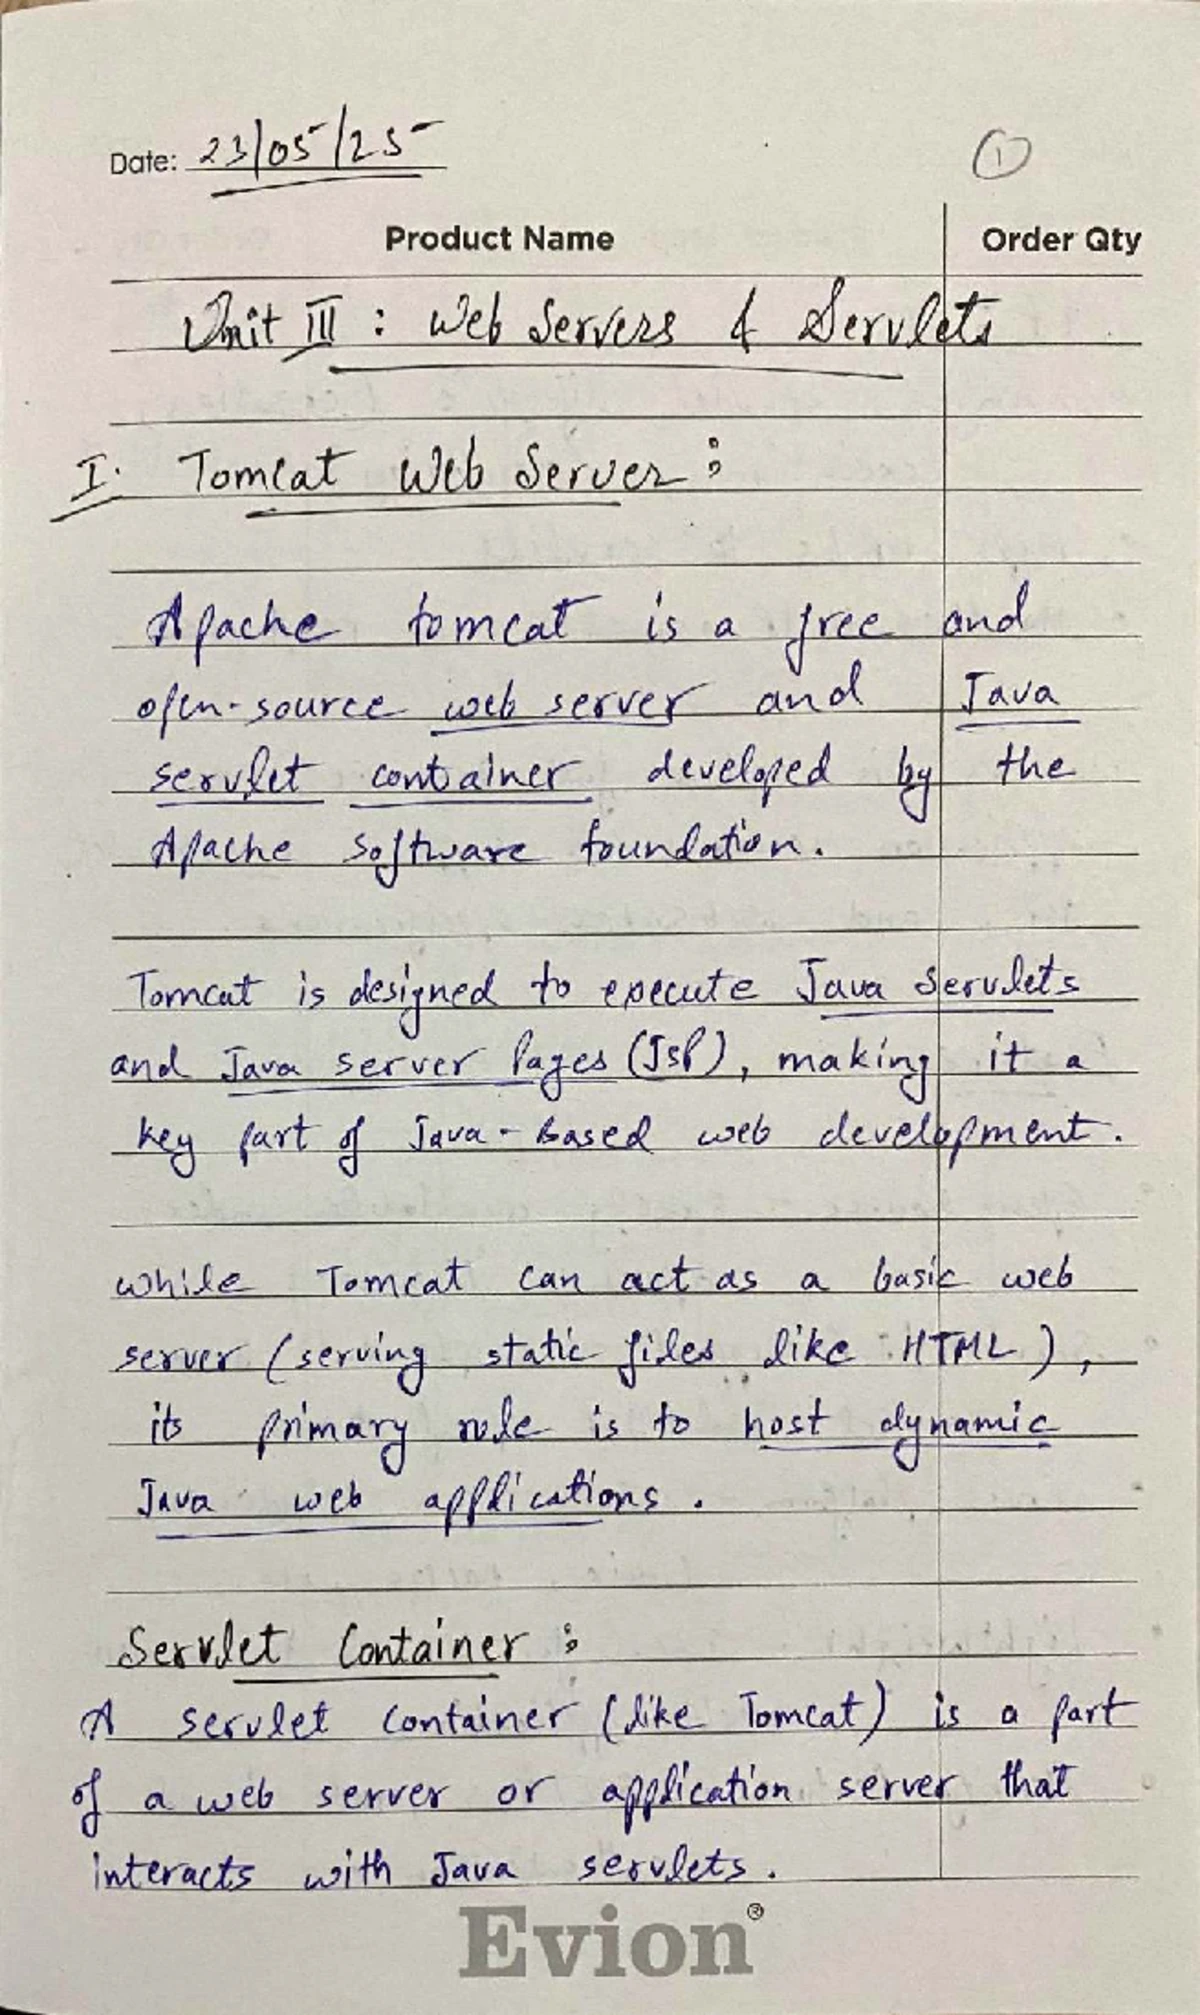 Date: 23/05/25
1
Product Name Order Qty
Unit III : Web Servers & Servlets
I. Tomcat Web Server:
Apache tomcat is a free and
open-source web server and Java
servlet container developed by the
Apache software foundation.
Tomcat is designed to execute Java Servlets
and Java server Pages (JSP), making it a
key part of Java-Based web development.
while Tomcat can act as a basic web
server (serving static files like HTML),
its primary role is to host dynamic
Java web applications.
Servlet Container:
A servlet container (like Tomcat) is a part
of a web server or application server that
interacts with Java servlets.
Evion®